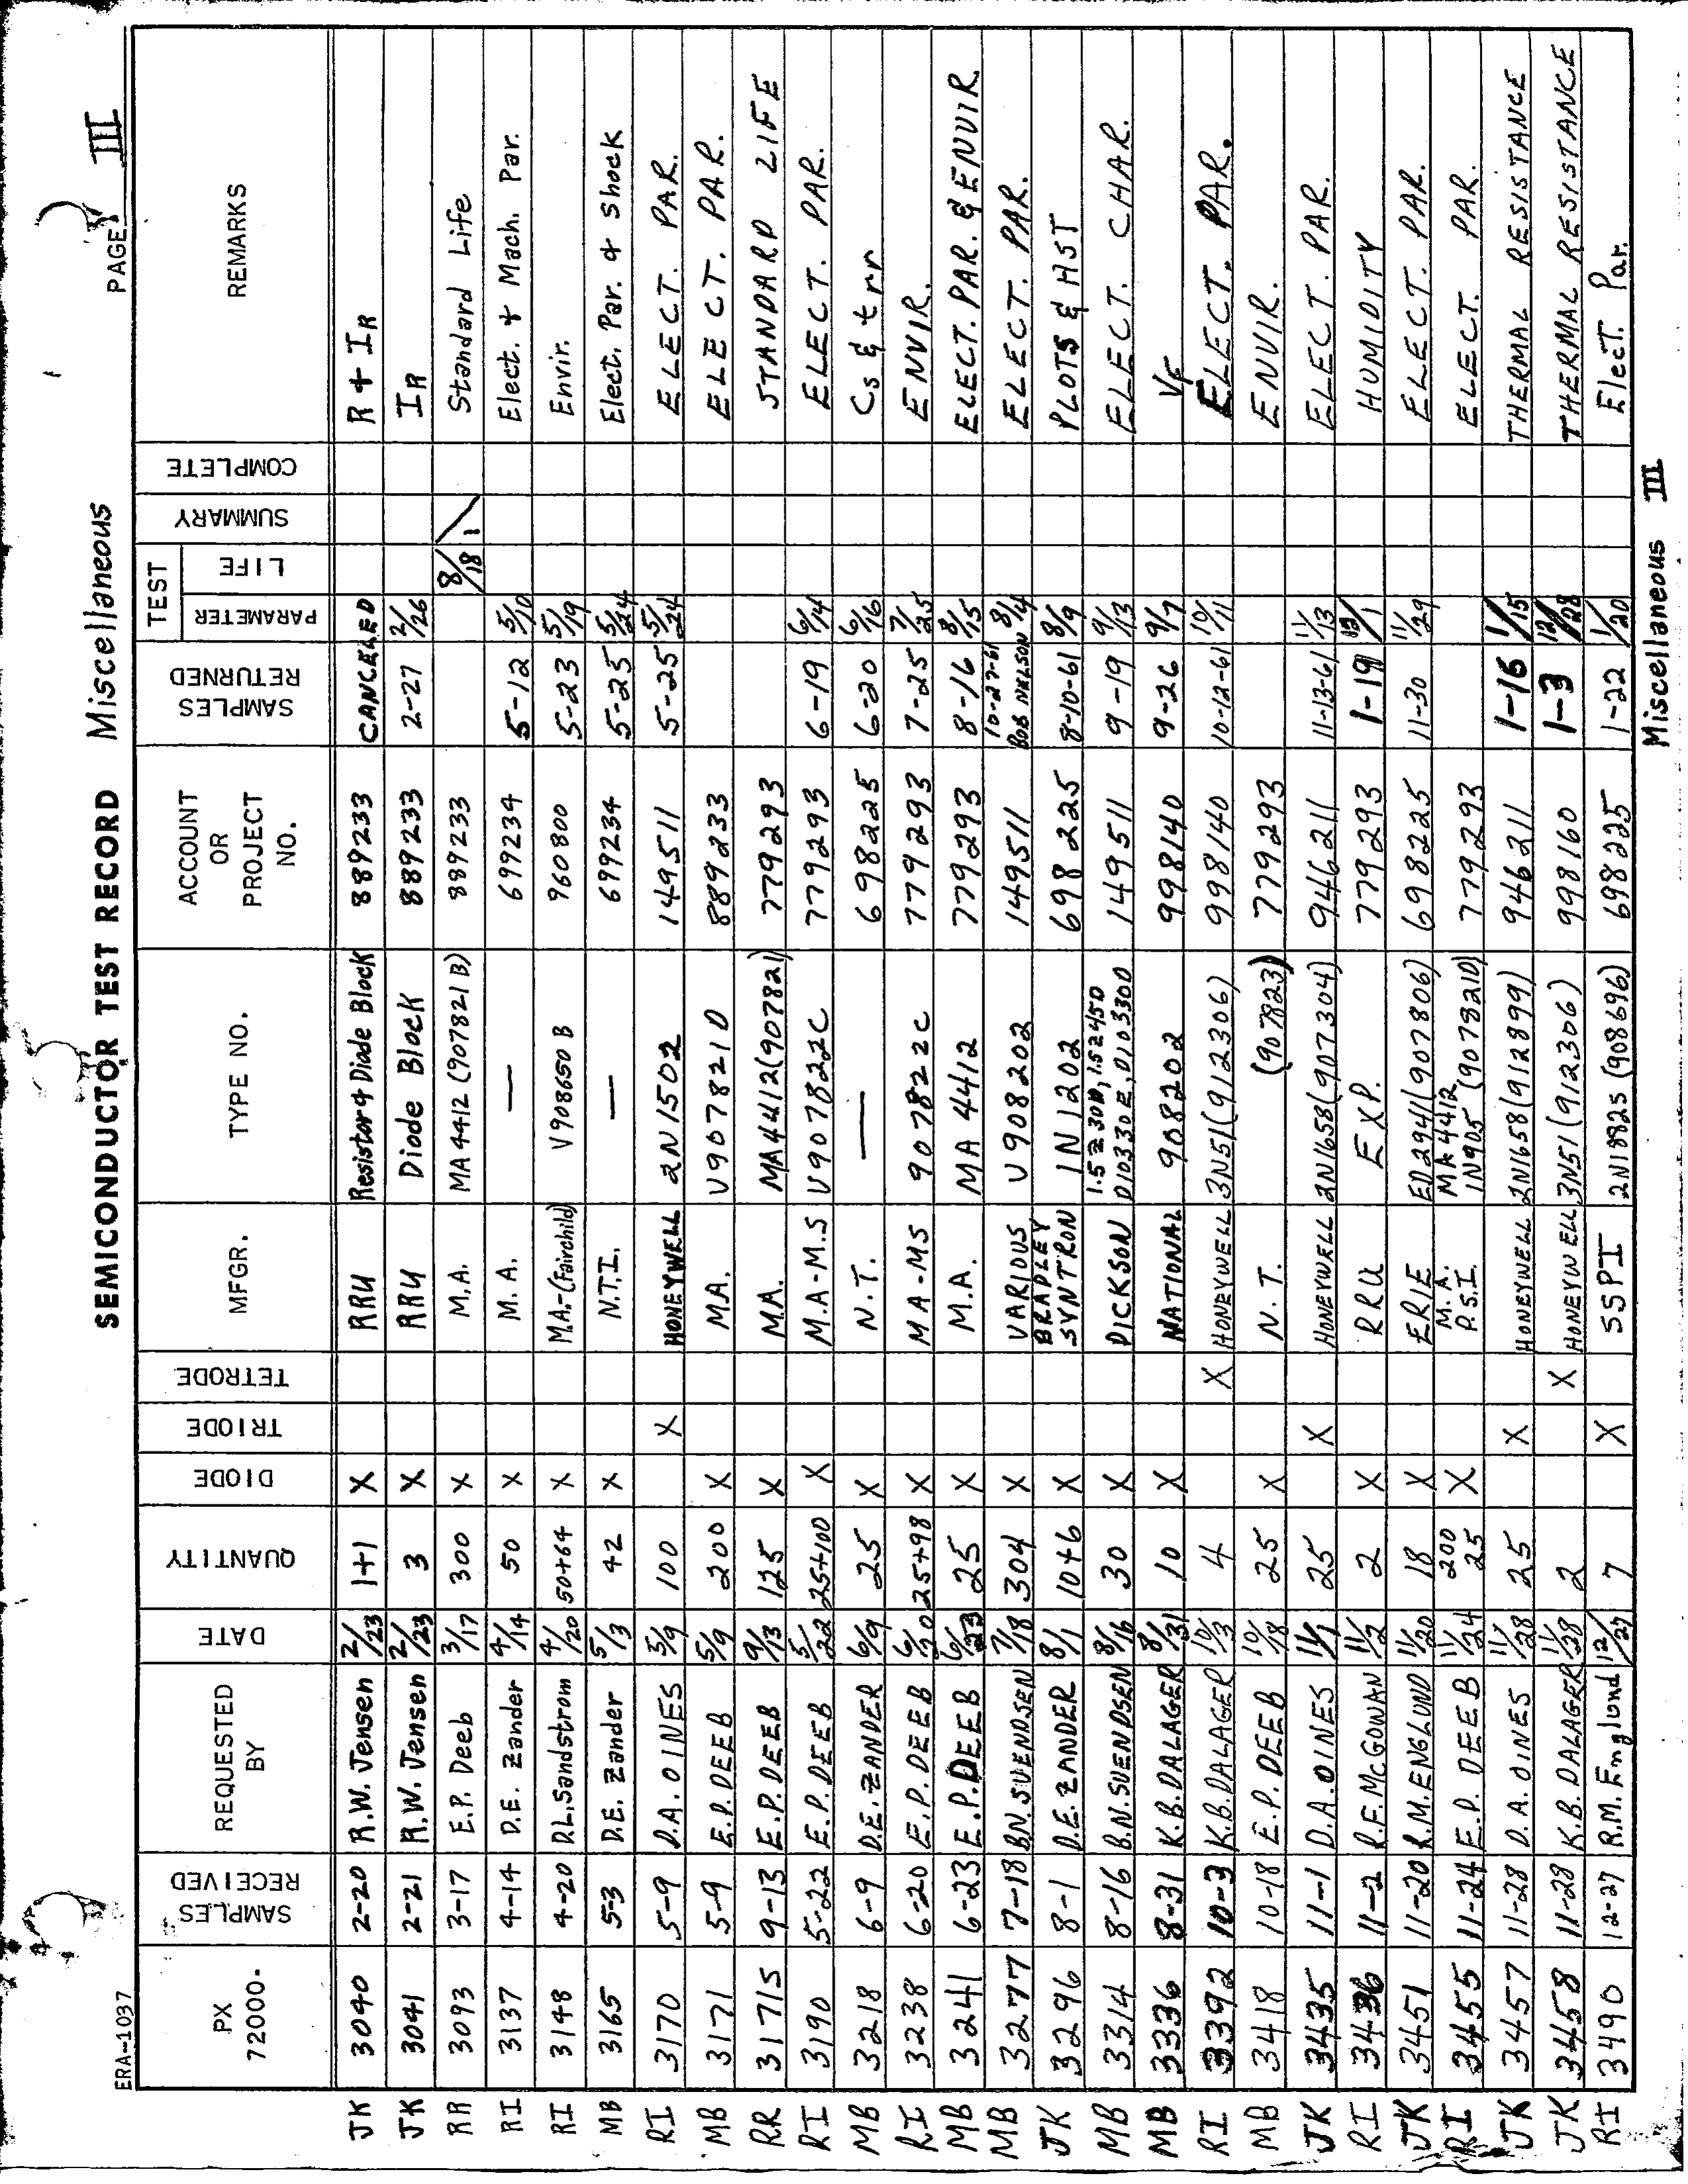 ERA-1037
SEMICONDUCTOR TEST RECORD Miscellaneous PAGE III
PX 72000. SAMPLES RECEIVED REQUESTED BY DATE QUANTITY DIODE TRIODE TETRODE MFGR. TYPE NO. ACCOUNT OR PROJECT NO. SAMPLES RETURNED TEST PARAMETER LIFE SUMMARY COMPLETE REMARKS
JK 3040 2-20 R.W. Jensen 2/23 1+1 X RRU Resistor & Diode Block 889233 CANCELED R + IR
JK 3041 2-21 R.W. Jensen 2/23 3 X RRU Diode Block 889233 2-27 2/26 IR
RR 3093 3-17 E.P. Deeb 3/17 300 X M.A. MA4412 (907821B) 889233 8/18 Standard Life
RI 3137 4-14 D.E. Zander 4/14 50 X M.A. — 699234 5-12 5/10 Elect. + Mach. Par.
RI 3148 4-20 D.L. Sandstrom 4/20 50+64 X M.A.-(Fairchild) V908650B 960800 5-23 5/19 Envir.
MB 3165 5-3 D.E. Zander 5/3 42 X N.T.I. — 699234 5-25 5/24 Elect. Par. + Shock
RI 3170 5-9 D.A. OINES 5/9 100 X HONEYWELL 2N1502 149511 5-25 5/24 ELECT. PAR.
MB 3171 5-9 E.P. DEEB 5/9 200 X M.A. V907821D 889233 ELECT. PAR.
RR 31715 9-13 E.P. DEEB 9/13 125 X M.A. MA4412(907821) 779293 STANDARD LIFE
RI 3190 5-22 E.P. DEEB 5/22 25+100 X M.A-M.S V907822C 779293 6-19 6/14 ELECT. PAR.
MB 3218 6-9 D.E. ZANDER 6/9 25 X N.T. — 698225 6-20 6/16 Cs & trr
RI 3238 6-20 E.P. DEEB 6/20 25+98 X MA-MS 907822C 779293 7-25 7/25 ENVIR.
MB 3241 6-23 E.P. DEEB 6/23 25 X M.A. MA 4412 779293 8-16 8/15 ELECT. PAR. & ENVIR
MB 3277 7-18 B.N. SVENDSEN 7/18 304 X VARIOUS V908202 149511 10-27-61 BOB 8/14 ELECT. PAR.
JK 3296 8-1 D.E. ZANDER 8/1 10+6 X BRADLEY SYNTRON 1N1202 698225 8-10-61 8/9 PLOTS & HST
MB 3314 8-16 B.N. SVENDSEN 8/16 30 X DICKSON 1.5Z30D, 1.5Z450 D10330E, D103300 149511 9-19 9/13 ELECT. CHAR.
MB 3336 8-31 K.B. DALAGER 8/31 10 X NATIONAL 908202 998140 9-26 9/7 VF
RI 3392 10-3 K.B. DALAGER 10/3 4 X HONEYWELL 3N51(912306) 998140 10-12-61 10/11 ELECT. PAR.
MB 3418 10-18 E.P. DEEB 10/18 25 X N.T. (907823) 779293 ENVIR.
JK 3435 11-1 D.A. OINES 11/1 25 X HONEYWELL 2N1658(907304) 946211 11-13-61 11/13 ELECT. PAR.
RI 3436 11-2 R.E. McGOWAN 11/2 2 X RRU EXP. 779293 1-19 12/1 HUMIDITY
JK 3451 11-20 R.M. ENGLUND 11/20 18 X ERIE ED2941(907806) 698225 11-30 11/29 ELECT. PAR.
RI 3455 11-24 E.P. DEEB 11/24 200 25 X M.A. P.S.I. MA4412 1N905 (907821D) 779293 ELECT. PAR.
JK 3457 11-28 D.A. OINES 11/28 25 X HONEYWELL 2N1658(912899) 946211 1-16 1/15 THERMAL RESISTANCE
JK 3458 11-28 K.B. DALAGER 11/28 2 X HONEYWELL 3N51(912306) 998160 1-3 12/28 THERMAL RESISTANCE
RI 3490 12-27 R.M. Englund 12/27 7 X SSPI 2N1882S (908696) 698225 1-22 1/20 ElecT. Par.
Miscellaneous III